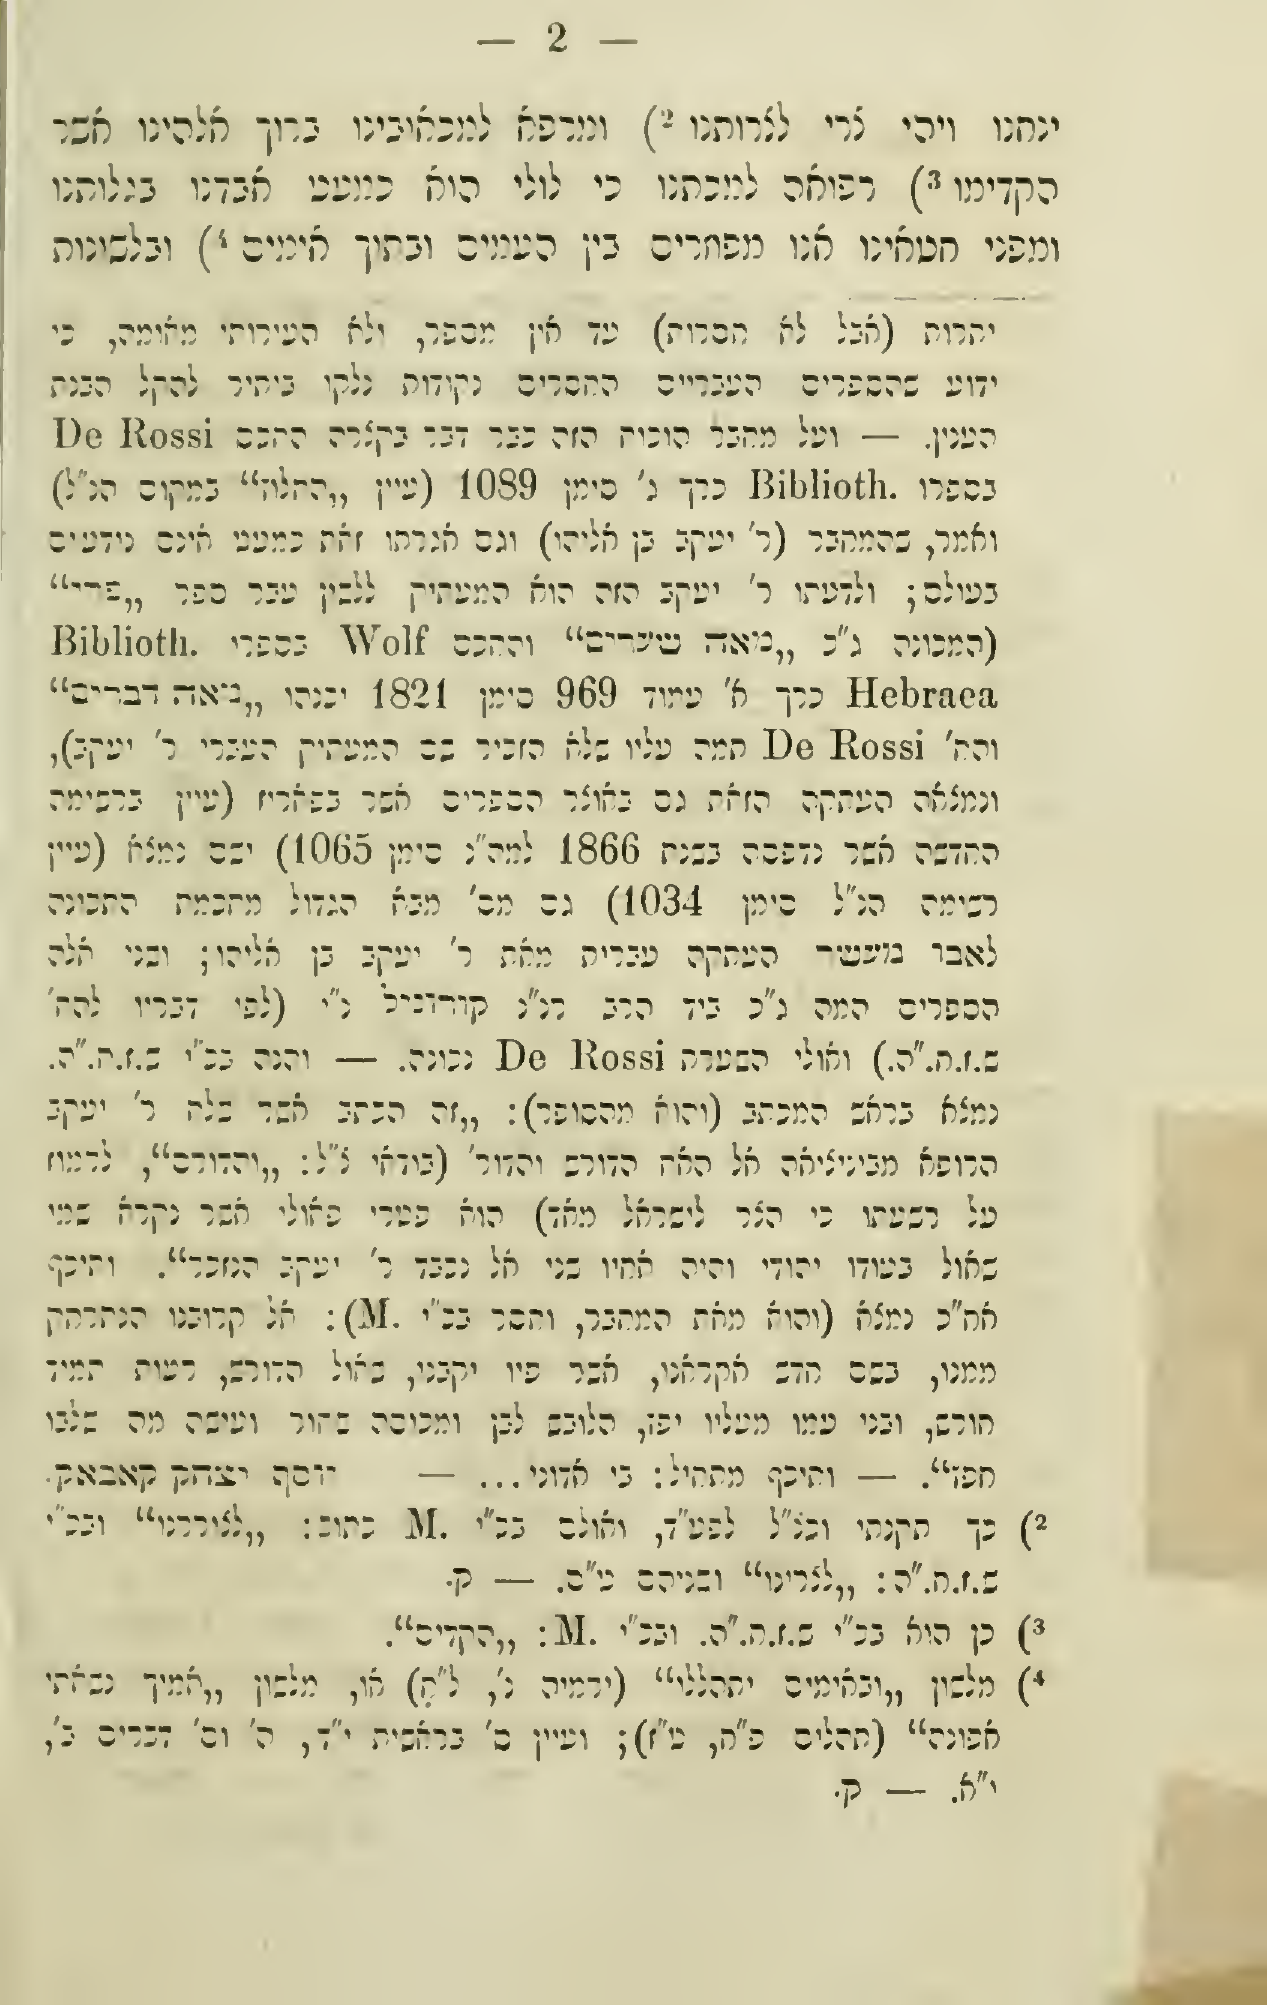 — 2 —
ינחנו ויהי צרי לצרותנו ²) ומרפא למכאובינו ברוך אלהינו אשר
הקדימנו ³) רפואה למכתנו כי לולי הוא כמעט אבדנו בגלותנו
ומפני חטאינו אנו מפוזרים בין העמים ובתוך אימים ⁴) ובלשונות
יתרות (אבל לא חסרות) עד אין מספר, ולא העירותי מאומה, כי
ידוע שהספרים העבריים החסרים נקודות נלקו ביתיר להקל הבנת
הענין. — ועל מחבר הוכוח הזה כבר דבר בקצרה החכם De Rossi
בספרו Biblioth. כרך ג' סימן 1089 (עיין „החלוץ“ במקום הנ"ל)
ואמר, שהמחבר (ר' יעקב בן אליהו) וגם אגרתו זאת כמעט אינם נודעים
בעולם; ולדעתו ר' יעקב הזה הוא המעתיק ללשון עבר ספר
(המכונה ג"כ „מאה שערים“ והחכם Wolf בספרו Biblioth.
Hebraea כרך א' עמוד 969 סימן 1821 יכנהו „מאה דברים“
והח' De Rossi תמה עליו שלא הזכיר שם המעתיק העברי ר' יעקב),
ונמצאה העתקה הזאת גם באוצר הספרים אשר בפאריז (עיין ברשימה
החדשה אשר נדפסה בשנת 1866 למה"נ סימן 1065) ושם נמצא (עיין
רשימה הנ"ל סימן 1034) גם מס' מבא הגדול מחכמת התכונה
לאבו מעשר העתקה עברית מאת ר' יעקב בן אליהו; ושני אלה
הספרים המה ג"כ ביד הרב רנ"נ קורוניל נ"י (לפי דבריו להח'
ש.ז.ח."ה.) ואולי השערת De Rossi נכונה. — והנה בכ"י ש.ז.ח."ה.
נמצא בראש המכתב (והוא מהסופר): „זה הכתב אשר שלח ר' יעקב
הרופא מביניציאה אל האח הדורש והדור' (בודאי צ"ל: „והדורס“, לרמוז
על רשעתו כי הצר לישראל מאד) הוא פטרי פאולי אשר נקרא שמו
שאול בעודו יהודי והיה אחיו שני אל נכבד ר' יעקב הנזכר“. ותיכף
אח"כ נמצא (והוא מאת המחבר, וחסר בכ"י M.): אל קרובנו הנתרחק
ממנו, בשם חדש אקראנו, אשר פיו יקבנו, שאול הדורש, רשות תמיד
חורש, ובני עמו מעליו יפד, הלובש לבן ומכוסה שחור ועושה מה שלבו
חפץ“. — ותיכף מתחיל: בי אדוני... — יוסף יצחק קאבאק.
²) כך תקנתי וכצ"ל לפע"ד, ואולם בכ"י M. כתוב: „לצוררנו“ ובכ"י
ש.ז.ח."ה: „לצרינו“ ושניהם ט"ס. — ק.
³) כן הוא בכ"י ש.ז.ח."ה. ובכ"י M.: „הקדים“.
⁴) מלשון „ובאימים יתהללו“ (ירמיה נ', ל"ח) או, מלשון „אמיך נשאתי
אפונה“ (תהלים פ"ח, ט"ז); ועיין ס' בראשית י"ד, ה' וס' דברים ב',
י"א. — ק.